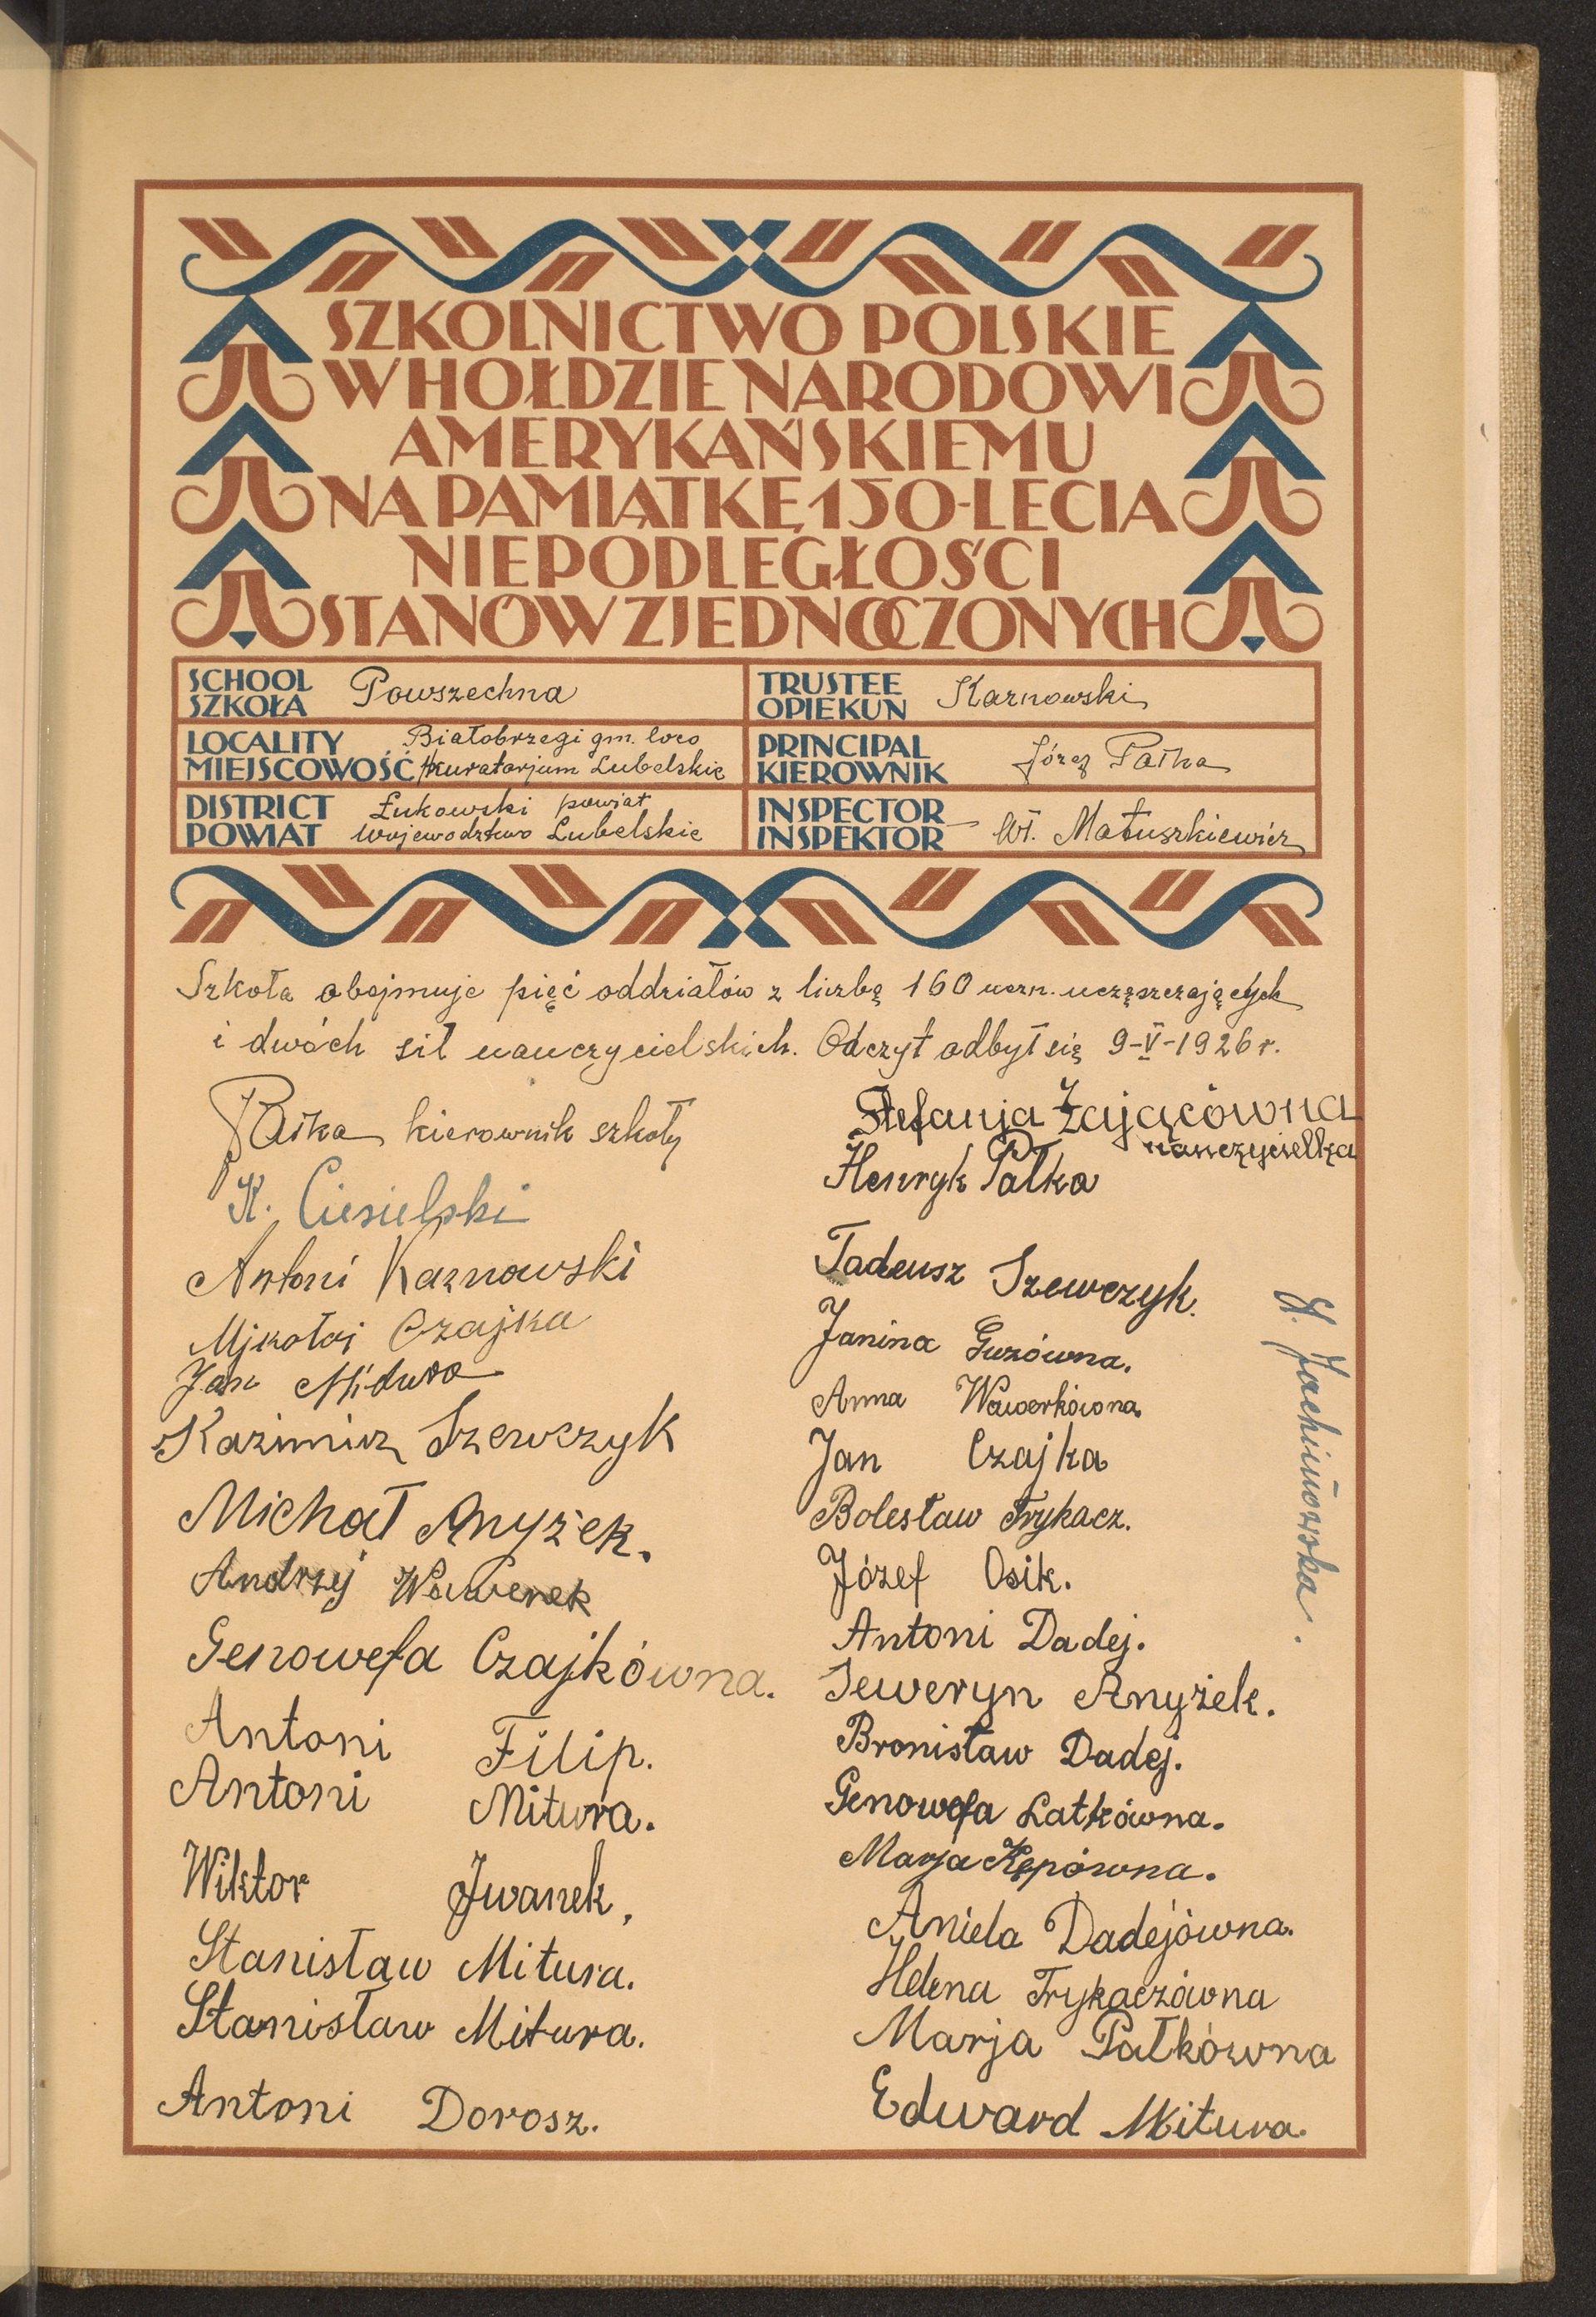 SZKOLNICTWO POLSKIE
W HOŁDZIE NARODOWI
AMERYKAŃSKIEMU
NA PAMIĄTKĘ 150-LECIA
NIEPODLEGŁOŚCI
STANÓW ZJEDNOCZONYCH
SCHOOL
SZKOŁA
Powszechna
TRUSTEE
OPIEKUN
Karnowski
LOCALITY
MIEJSCOWOŚĆ
Białobrzegi gm. loco
Kuratorjum Lubelskie
PRINCIPAL
KIEROWNIK
Józef Pałka
DISTRICT
POWIAT
Łukowski powiat
Województwo Lubelskie
INSPECTOR
INSPEKTOR
Wł. Matuszkiewicz
Szkoła obejmuje pięć oddziałów z liczbą 160 uczn. uczęszczających
i dwóch sił nauczycielskich. Odczyt odbył się 9-V-1926 r.
JPałka kierownik szkoły
K. Ciesielski
Antoni Karnowski
Mjkołaj Czajka
Jan Midura
Kazimierz Szewczyk
Michał Anyżek.
Andrzej Wawerek
Genowefa Czajkówna.
Antoni Filip.
Antoni Mitura.
Wiktor Jwanek.
Stanisław Mitura.
Stanisław Mitura.
Antoni Dorosz.
Stefanja Zającówna
nauczycielka
Henryk Pałka
Tadeusz Szewczyk.
Janina Guzówna.
Anna Wawerkówna
Jan Czajka
Bolesław Trykacz.
Józef Osik.
Antoni Dadej.
Seweryn Anyżek.
Bronisław Dadej.
Genowefa Latkówna.
Marja Kępówna.
Aniela Dadejówna.
Helena Trykaczówna
Marja Pałkówna
Edward Mitura.
Jachimowska.